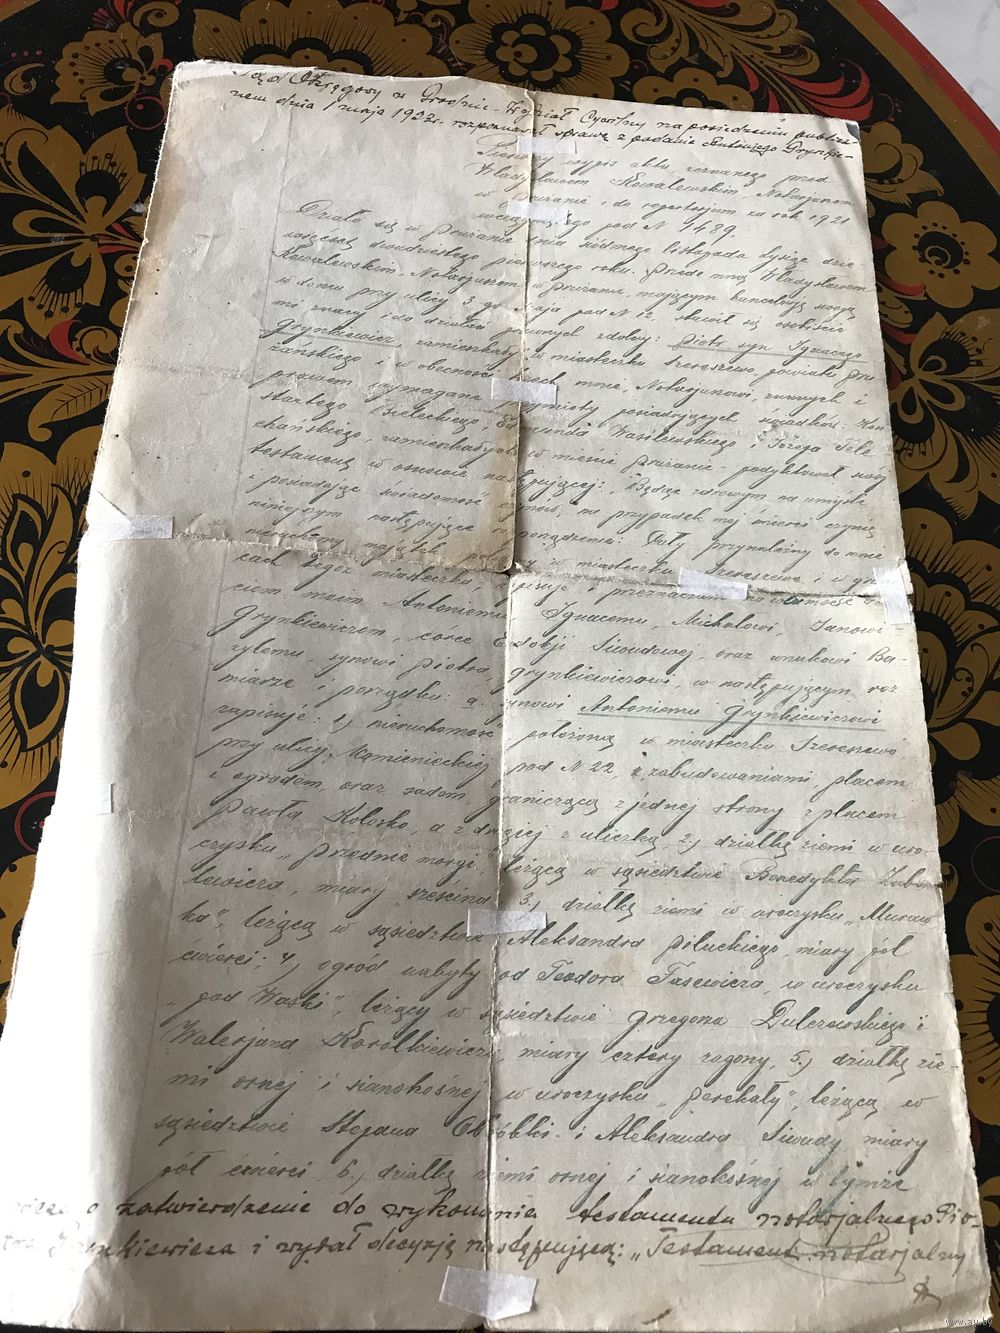 Sąd Okręgowy w Grodnie - Wydział Cywilny na posiedzeniu publicz-
nem dnia 1 maja 1923 r. rozpoznawał sprawę z podania Antoniego Grynkie-
wypis aktu zeznanego przed
Władysławem Kowalewskim, Notarjuszem
w Prużanie i do repertorjum za rok 1921
wciągniętego pod N 1489.
Działo się w Prużanie dnia siódmego listopada tysiąc dzie
więćset dwudziestego pierwszego roku. Przede mną Władysławem
Kowalewskim, Notarjuszem w Prużanie, mającym kancelarję swoją
w domu przy ulicy 3 go Maja pod N 12, stawił się osobiście
mi znany i do działań prawnych zdolny: Piotr syn Ignacego
Grynkiewicz, zamieszkały w miasteczku Szereszewo, powiatu Pru
żańskiego i w obecności trzech mnie, Notarjuszowi, znanych i
prawem wymagane przymioty posiadających świadków: Kon
stantego Bieleckiego, Edmunda Wasilewskiego i Józefa Tele
chańskiego, zamieszkałych w mieście Prużanie - podyktował swój
testament w osnowie następującej: "Będąc zdrowym na umyśle
i posiadając świadomość czynów, na przypadek mej śmierci czynię
niniejszym następujące rozporządzenie: Cały przynależny do mnie
nieruchomy majątek w miasteczku Szereszewo i w gra
cach tegoż miasteczka, zapisuję i przeznaczam na własność dzie
ciom moim Antoniemu, Ignacemu, Michałowi, Janowi
Grynkiewiczom, córce Eudokji Siwudowej, oraz wnukowi Ba-
zylemu, synowi Piotra, Grynkiewiczowi, w następującym roz
miarze i porządku: a. synowi Antoniemu Grynkiewiczowi
zapisuję: 1.) nieruchomość położoną w miasteczku Szereszewo
przy ulicy Kamienieckiej pod N 22, z zabudowaniami placem,
i ogrodem, oraz sadem, graniczącą z jednej strony z placem
Pawła Kolosko, a z drugiej z uliczką, 2.) działkę ziemi w uro-
czysku "Przednie morgi", leżącą w sąsiedztwie Benedykta
lewicza, miary sześcina, 3.) działkę ziemi w uroczysku "Muraw
ka", leżącą w sąsiedztwie Aleksandra Piłuckiego, miary pół
ćwierci; 4.) ogród nabyty od Teodora Tasewicza, w uroczysku
"pod Waski", leżący w sąsiedztwie Grzegorza Dulczewskiego i
Walerjana Karolkiewicza, miary cztery zagony, 5.) działkę zie-
mi ornej i sianokośnej w uroczysku "Perekały", leżącą w
sąsiedztwie Stefana i Aleksandra Siwudy miary
pół ćwierci, 6.) działkę ziemi ornej i sianokośnej w tymże
o zatwierdzenie do wykonania testamentu notarjalnego Pio-
tra Grynkiewicza i wydał decyzję następującą: "Testament notarjalny
www.au.by